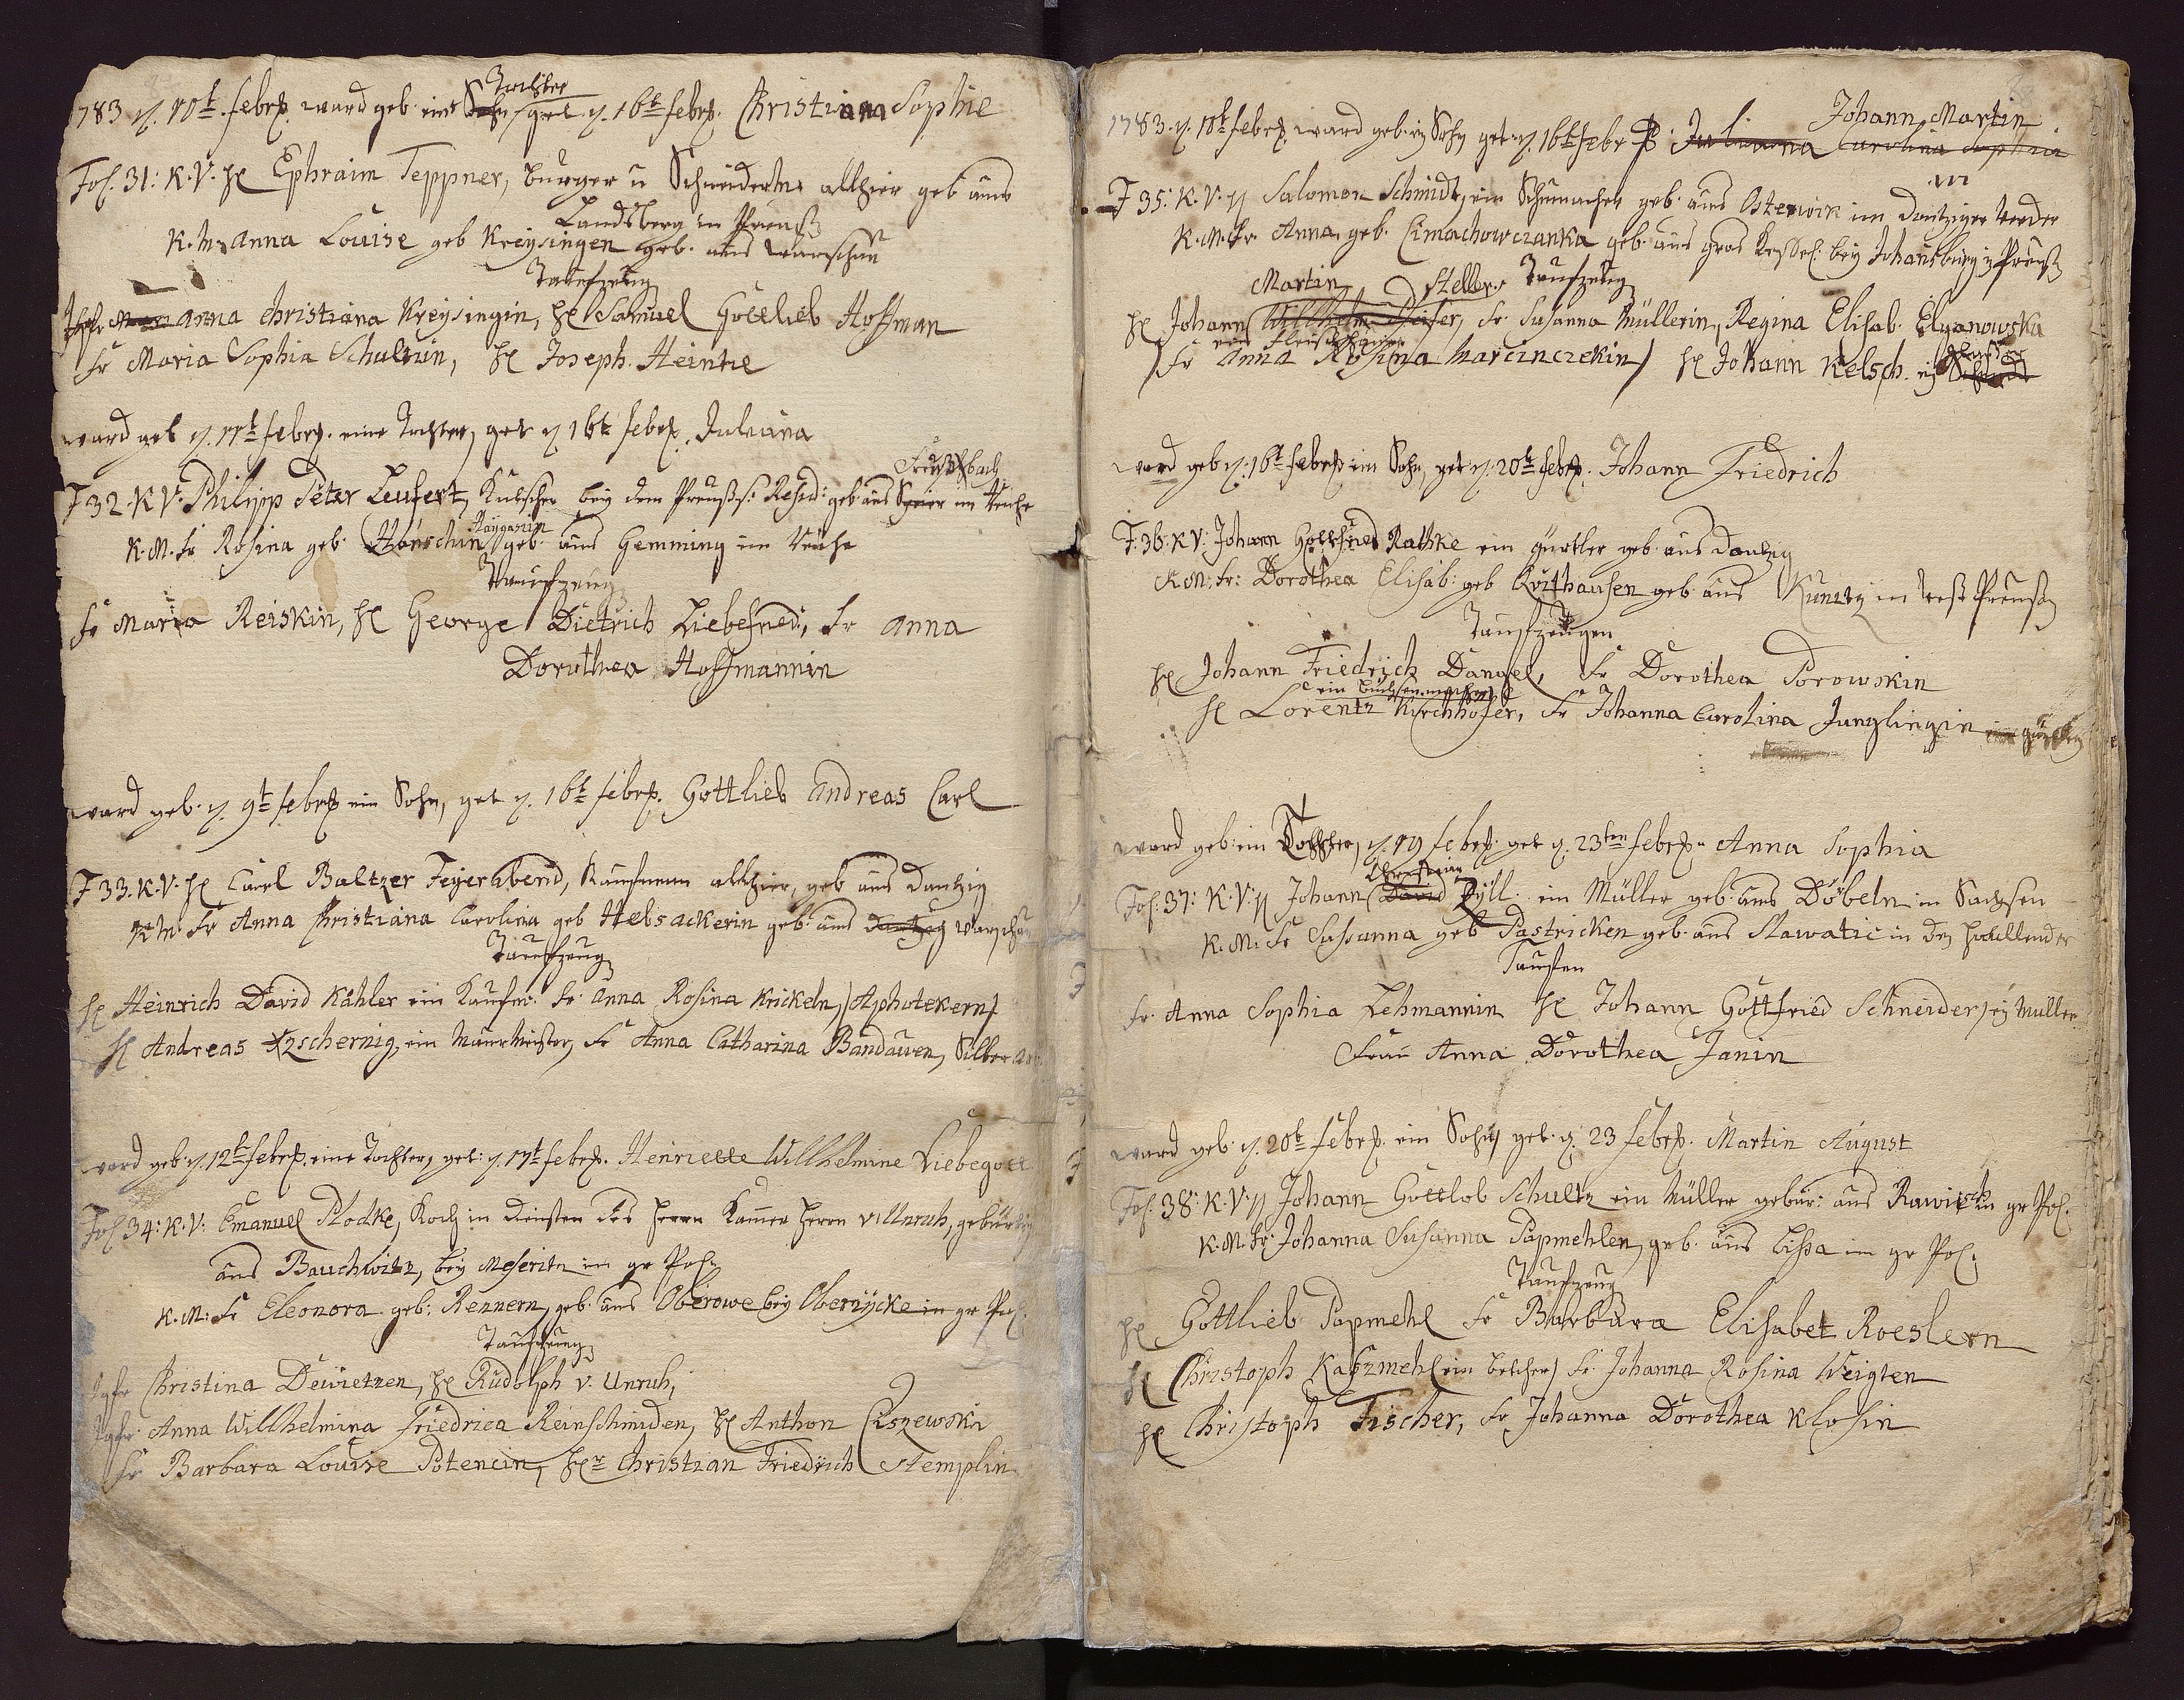 Tochter
1783 d. 10t. febr. ward geb. eine Sohn, get. d. 16t febr. Christiana Sophie
Fol. 31: K. V. H Ephraim Teppner, burger u Schneiderm. allhier geb aus
Landsberg in Preuß
K. M. Anna Louise geb Kreysingen geb. aus Warschau
Taufzeug
Jgfr Anna Christiana Kreysingin, H Samuel Gottlieb Hoffman
Fr Maria Sophia Schultzin, H Joseph Heintze
ward geb d. 11t febr. eine Tochter, get d 16t febr. Juliana
F 32. K V. Philipp Peter Leufert, Kutscher bey dem Preußs. Resid: geb aus Speier im Reiche
Haygasin
K. M. Fr Rosina geb. Hänschin geb. aus Gemming im Reiche
Taufzeug
Fr Maria Reiskin, H George Dietrich Liebefried, Fr Anna
Dorothea Hoffmannin
ward geb. d. 9t febr ein Sohn, get d. 16t febr. Gottlieb Andreas Carl
F 33. K. V. H Carl Baltzer Feyerabend, Kaufmann allhier, geb aus Dantzig
K M. Fr Anna Christiana Carolina geb Helsackerin geb. aus Dantzig Warschau
Taufzeug
H Heinrich David Kähler ein Kaufm. Fr. Anna Rosina Krickeln, Aphotekern
H Andreas Tzschernig, ein Maurmeister, Fr Anna Catharina Bandauen, Silber
ward geb. d. 12t febr. eine Tochter, get: d. 17t febr. Henriette Willhelmine Liebegott
Fol 34: K. V: Emanuel Plodke, Koch in diensten des Herrn Kammer Herrn v Unruh, gebürtig
aus Bauchwitz, bey Meseritz in gr Pol.
K. M: Fr Eleonora geb: Rennern, geb. aus Oberowe bey Oberzycke in gr Pol.
Taufzeug
Jgfr Christina Dewietzen, H Rudolph v. Unruh,
Jgfr Anna Willhelmina Friedrica Reinschmiden, H Anthon Ciszewski
Fr Barbara Louise Potencin, Hr Christian Friedrich Stemplin
Johann Martin
1783. d. 10t febr ward geb. ein Sohn get d. 16t febr Juliana Carolina Sophia
F 35: K. V. H Salomon Schmidt, ein Schumacher geb. aus Osterwik im Dantziger Werder
K. M. Fr. Anna, geb. Cimachowczanka geb. aus gros Kessel bey Johansburg in Preuß
Martin Steller Taufzeug
H Johann Willhelm, Fr. Susanna Müllerin, Regina Elisab. Elganowska
Fr Anna Rosina Marcinczekin H Johann Kelsch. ein
ward geb d. 16t febr ein Sohn, get d. 20t febr. Johann Friedrich
F. 36. K V: Johann Gottfried Rathke ein Gürtler geb. aus Dantzig
K. M: Fr: Dorothea Elisab: geb Roithausen geb. aus Kunitz in West Preuß
Taufzeugen
H Johann Friedrich Dangel, Fr Dorothea Porowskin
ein buchsenmacher
H Lorentz Kirchhöfer, Fr Johanna Carolina Junglingin
ward geb. ein Tochter, d. 19 febr. get d. 23ten febr. Anna Sophia
Christian
Fol. 37: K. V: H Johann David Zyll. ein Müller geb. aus Döbeln in Sachsen
K. M. Fr Susanna geb Pastricken geb. aus Slawatic in den
Taufzen
Fr. Anna Sophia Lehmannin H Johann Gottfried Schneider, ein Müller
Frau Anna Dorothea Janin
ward geb d. 20t febr. ein Sohn get. d. 23 febr. Martin August
Fol. 38: K. V. H Johann Gottlob Schultz ein Müller gebür: aus Rawitsch in gr Pol.
K. M. Fr. Johanna Susanna Papmehlen, geb. aus Lissa im gr Pol.
Taufzeug
H Gottlieb Papmehl Fr Barbara Elisabet Roeslern
H Christoph Kaszmehl ein Fr. Johanna Rosina Weigten
H Christoph Fischer, Fr. Johanna Dorothea Klosin